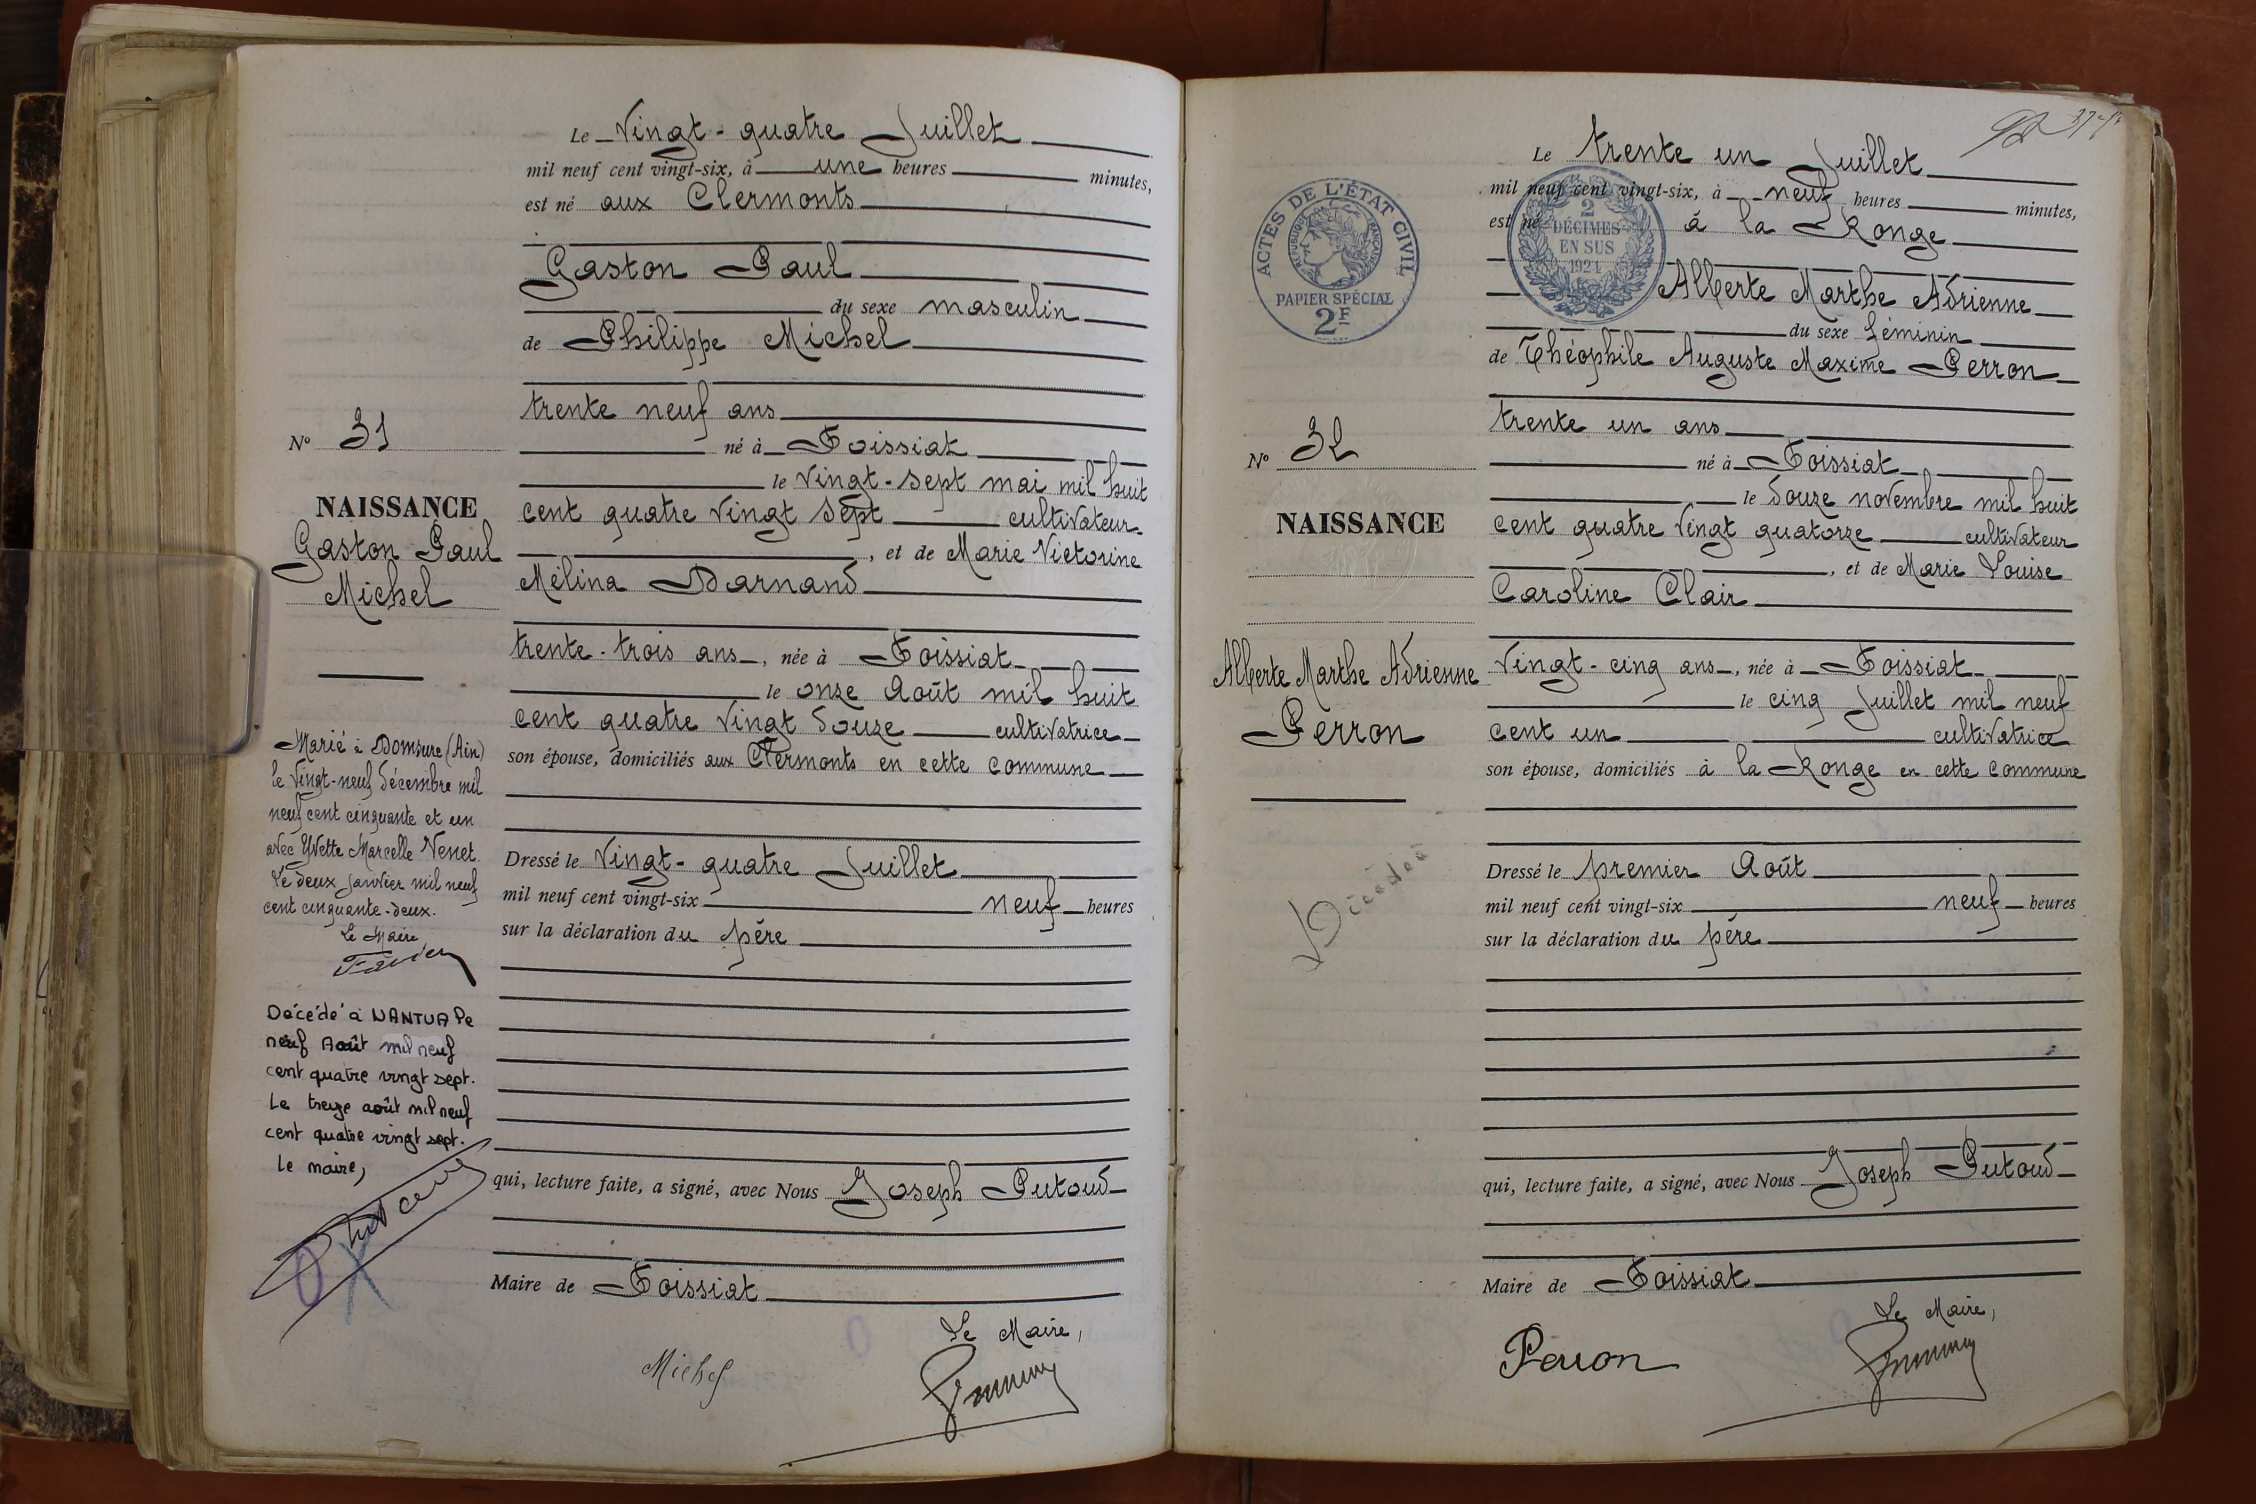 Le Vingt-quatre Juillet
mil neuf cent vingt-six, à une heures minutes,
est né aux Clermonts
Gaston Paul
du sexe masculin
de Philippe Michel
trente neuf ans
né à Foissiat
le vingt-sept mai mil huit
cent quatre vingt sept cultivateur
, et de Marie Victorine
Mélina Darnand
trente-trois ans, née à Foissiat
le onze Août mil huit
cent quatre vingt douze cultivatrice
son épouse, domiciliés aux Clermonts en cette commune
Dressé le Vingt-quatre Juillet
mil neuf cent vingt-six neuf heures
sur la déclaration du père
qui, lecture faite, a signé, avec Nous Joseph Putoud
Maire de Foissiat
Le Maire,
Michel
No 31
NAISSANCE
Gaston Paul
Michel
Marié à Domsure (Ain)
le vingt-neuf décembre mil
neuf cent cinquante et un
avec Yvette Marcelle Venet.
Le deux janvier mil neuf
cent cinquante-deux.
Le Maire
Décédé à NANTUA le
neuf Août mil neuf
cent quatre vingt sept.
Le treize août mil neuf
cent quatre vingt sept.
Le maire,
Le trente un Juillet
mil neuf cent vingt-six, à neuf heures minutes,
est né à la Ronge
Alberte Marthe Adrienne
du sexe féminin
de Théophile Auguste Maxime Perron
trente un ans
né à Foissiat
le douze novembre mil huit
cent quatre vingt quatorze cultivateur
, et de Marie Louise
Caroline Clair
Vingt-cinq ans, née à Foissiat
le cinq Juillet mil neuf
cent un cultivatrice
son épouse, domiciliés à la Ronge en cette commune
Dressé le premier Août
mil neuf cent vingt-six neuf heures
sur la déclaration du père
qui, lecture faite, a signé, avec Nous Joseph Putoud
Maire de Foissiat
Le Maire,
Perron
ACTES DE L'ÉTAT CIVIL
RÉPUBLIQUE FRANÇAISE
PAPIER SPÉCIAL
2F
2
DÉCIMES
EN SUS
1924
No 32
NAISSANCE
Alberte Marthe Adrienne
Perron
Décédée